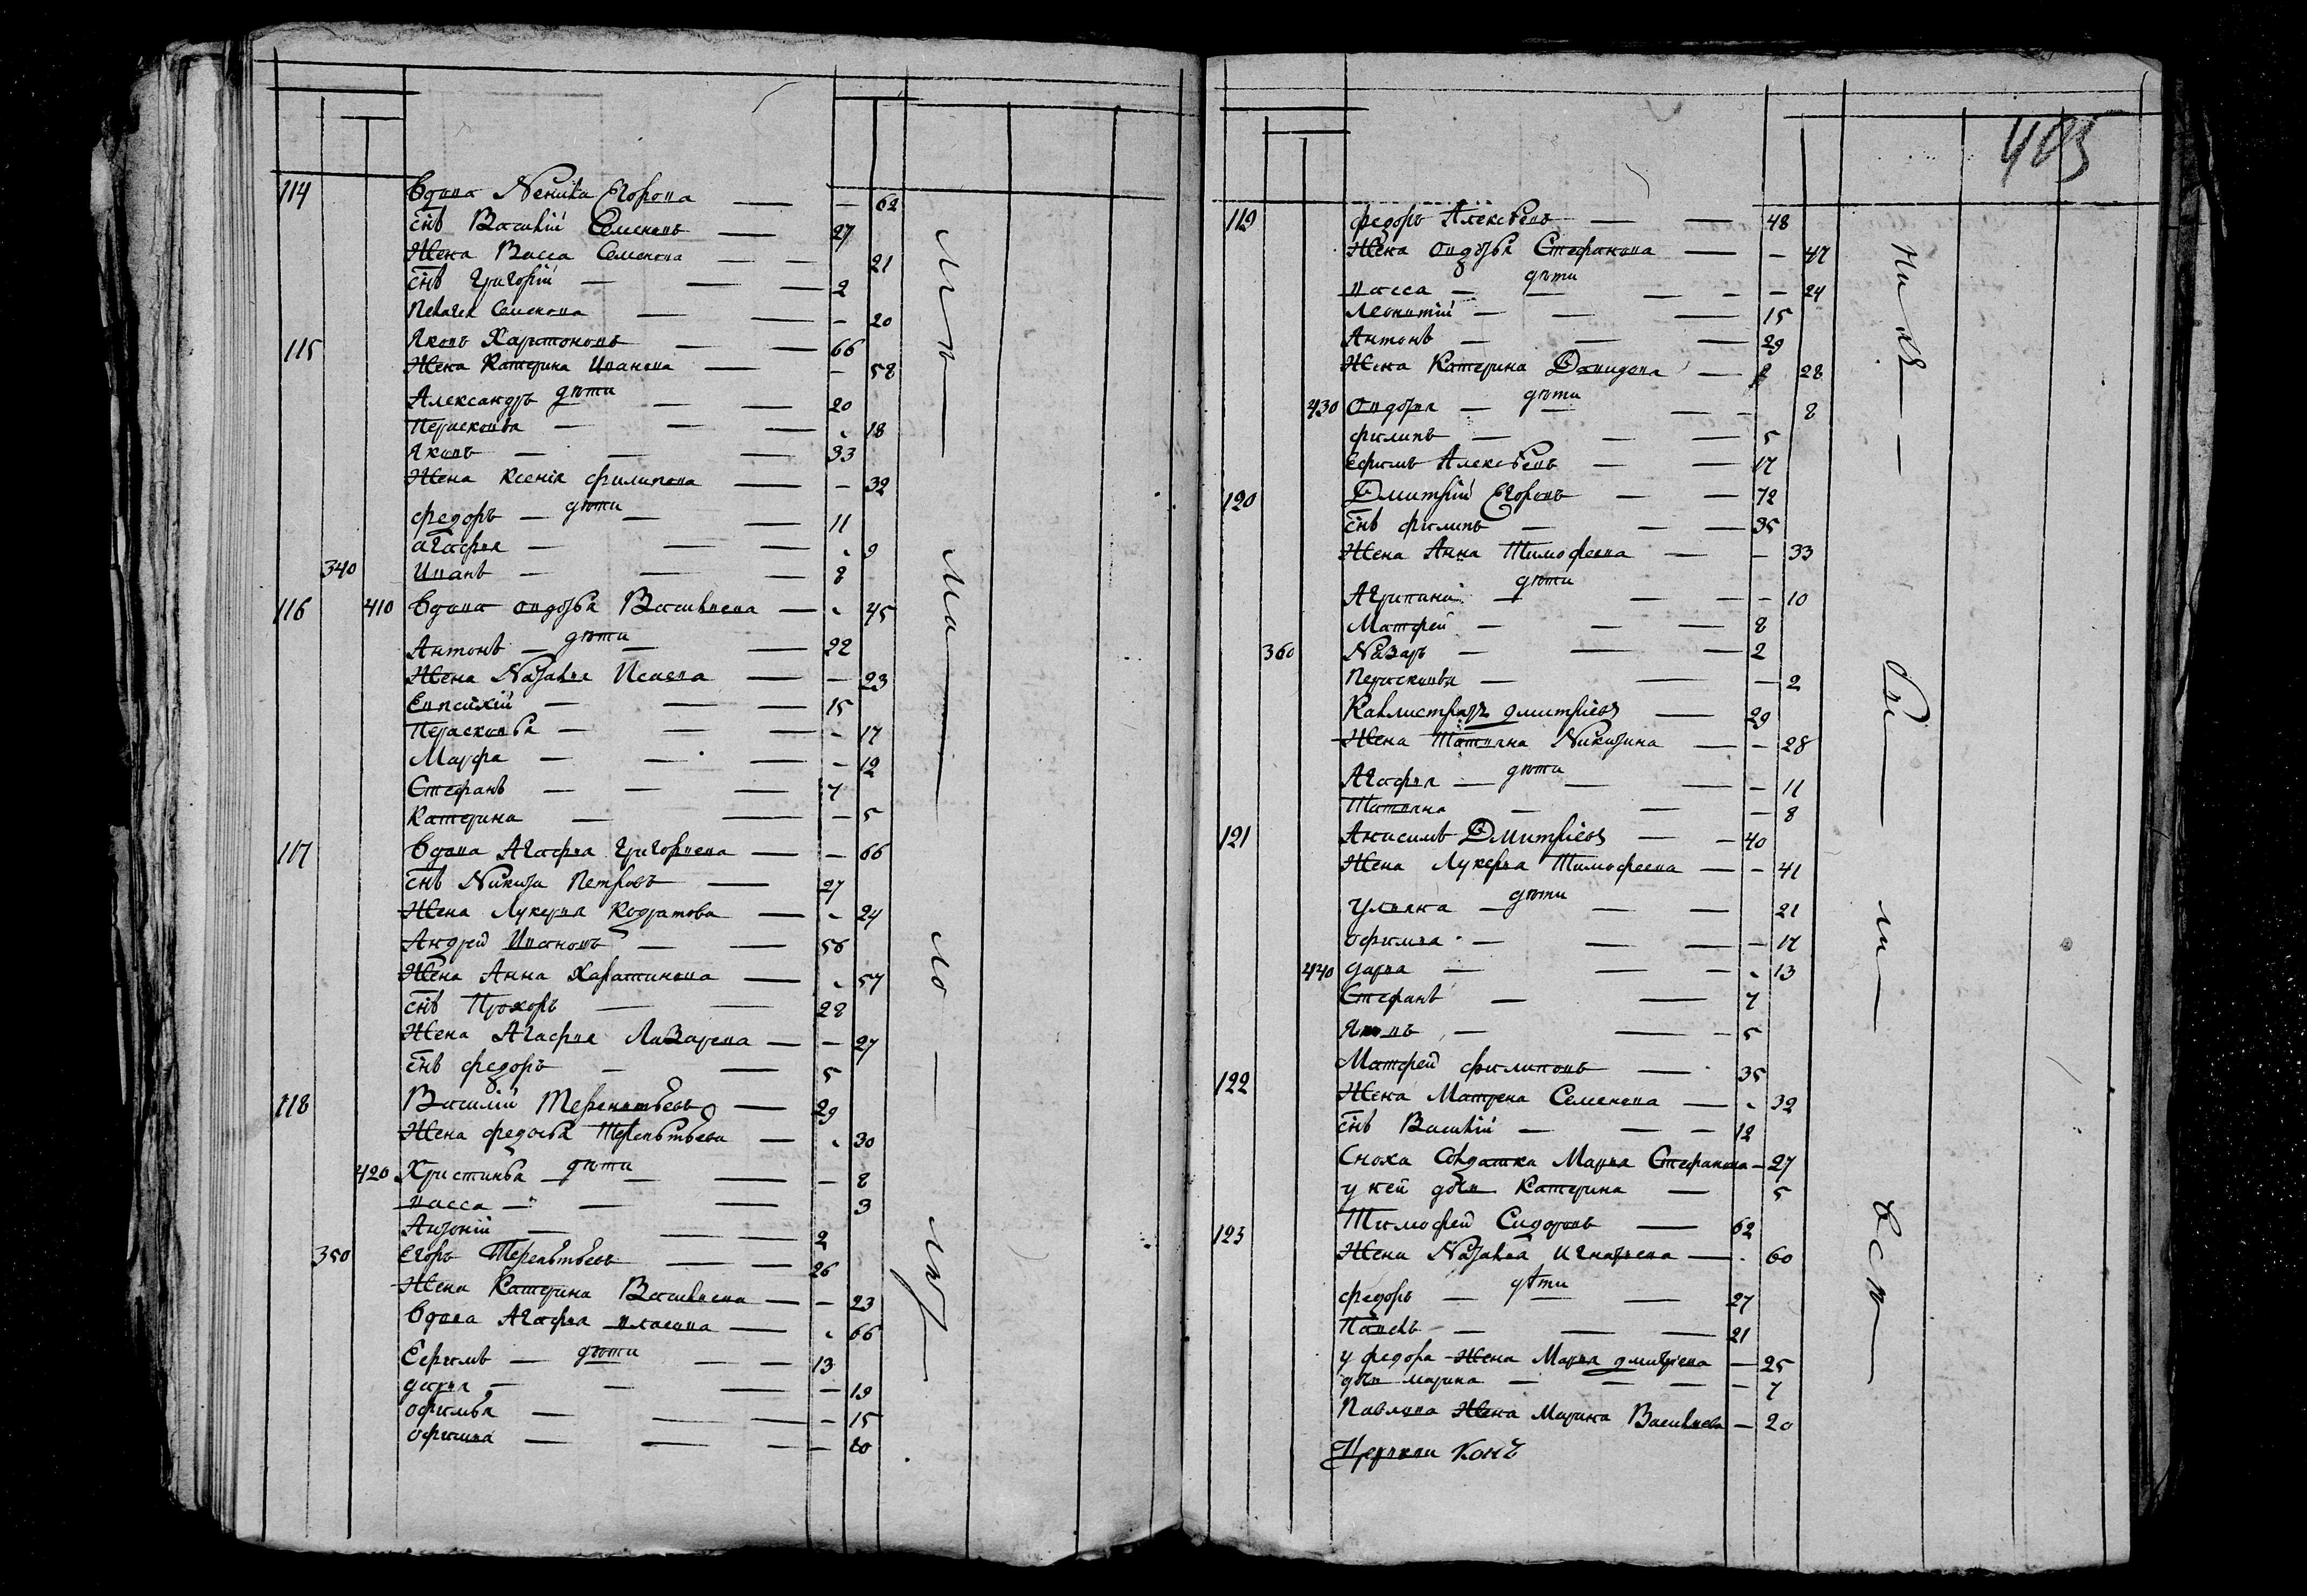 114 Вдова Ненила Егорова — — 62
снъ Василій Семеновъ — 27
Жена Васса Семенова — — 21
снъ Григорій — — — 2
Пелагея Семенова — — — 20
115 Яковъ Харитоновъ — — 66
Жена Катерина Иванова — — 58
дѣти
Александръ — — 20
Перасковья — — — 18
Яковъ — — — 33
Жена Ксенія Филипова — — 32
дѣти
Федоръ — — — 11
Агафья — — — 9
340 Иванъ — — — 8
116 410 Вдова Овдотья Васильева — 45
дѣти
Антонъ — — — 22
Жена Наталья Исаева — — 23
— — — 15
Перасковья — — — — 17
Марфа — — — — 12
Стефанъ — — — 7
Катерина — — — 5
117 Вдова Агафья Григорьева — — 66
снъ Никита Петровъ — 27
Жена Лукерья Кодратова — 24
Андрей Ивановъ — — 56
Жена Анна Харатинова — 57
снъ Прохоръ — — 28
Жена Агафья Лазарева — — 27
снъ Федоръ — — 5
118 Василій Терентьевъ — 29
Жена Федосья Терентьева — 30
дѣти
420 Христинья — — — — 8
васса — — — 3
Антоній — — — 2
350 Егоръ Терентьевъ — — 26
Жена Катерина Васильева — — 23
Вдова Агафья Власова — 66
дѣти
Ефимъ — — — 13
дарья — — — — 19
Офимья — — — — 15
Офимья — — — — 10
403
119 Федоръ Алексѣевъ — — 48
Жена Овдотья Стефанова — — 47
дѣти
васса — — — — — 24
Леонтій — — — 15
Антонъ — — — 29
Жена Катерина Давидова — 28
дѣти
430 Овдотья — — — — 8
Филипъ — — — 5
Ефимъ Алексѣевъ — — 17
120 Дмитрій Егоровъ — — 72
снъ Филипъ — — — 35
Жена Анна Тимофеева — — 33
дѣти
Агрипина — — — — 10
Матфей — — — 8
360 Назаръ — — — 2
Перасковья — — — 2
Калистратъ Дмитріевъ — 29
Жена Татьяна Никитина — — 28
дѣти
Агафья — — — — 11
Татьяна — — — 8
121 Анисимъ Дмитріевъ — — 40
Жена Лукерья Тимофеева — — 41
дѣти
Ульяна — — — 21
Офимья — — — — 17
440 дарья — — — 13
Стефанъ — — 7
Яковъ — — — 5
122 Матфей Филиповъ — 35
Жена Матрена Семенова — 32
снъ Василій — — — 12
Сноха Солдатка Марья Стефанова — 27
у ней дочь Катерина — 5
123 Тимофей Сидоровъ — 62
Жена Наталья Игнатьева — 60
дѣти
Федоръ — — — 27
Павелъ — — — 21
у Федора Жена Марья Дмитріева — 25
дочь Марина — — — — 7
Павлова Жена Марина Васильева — 20